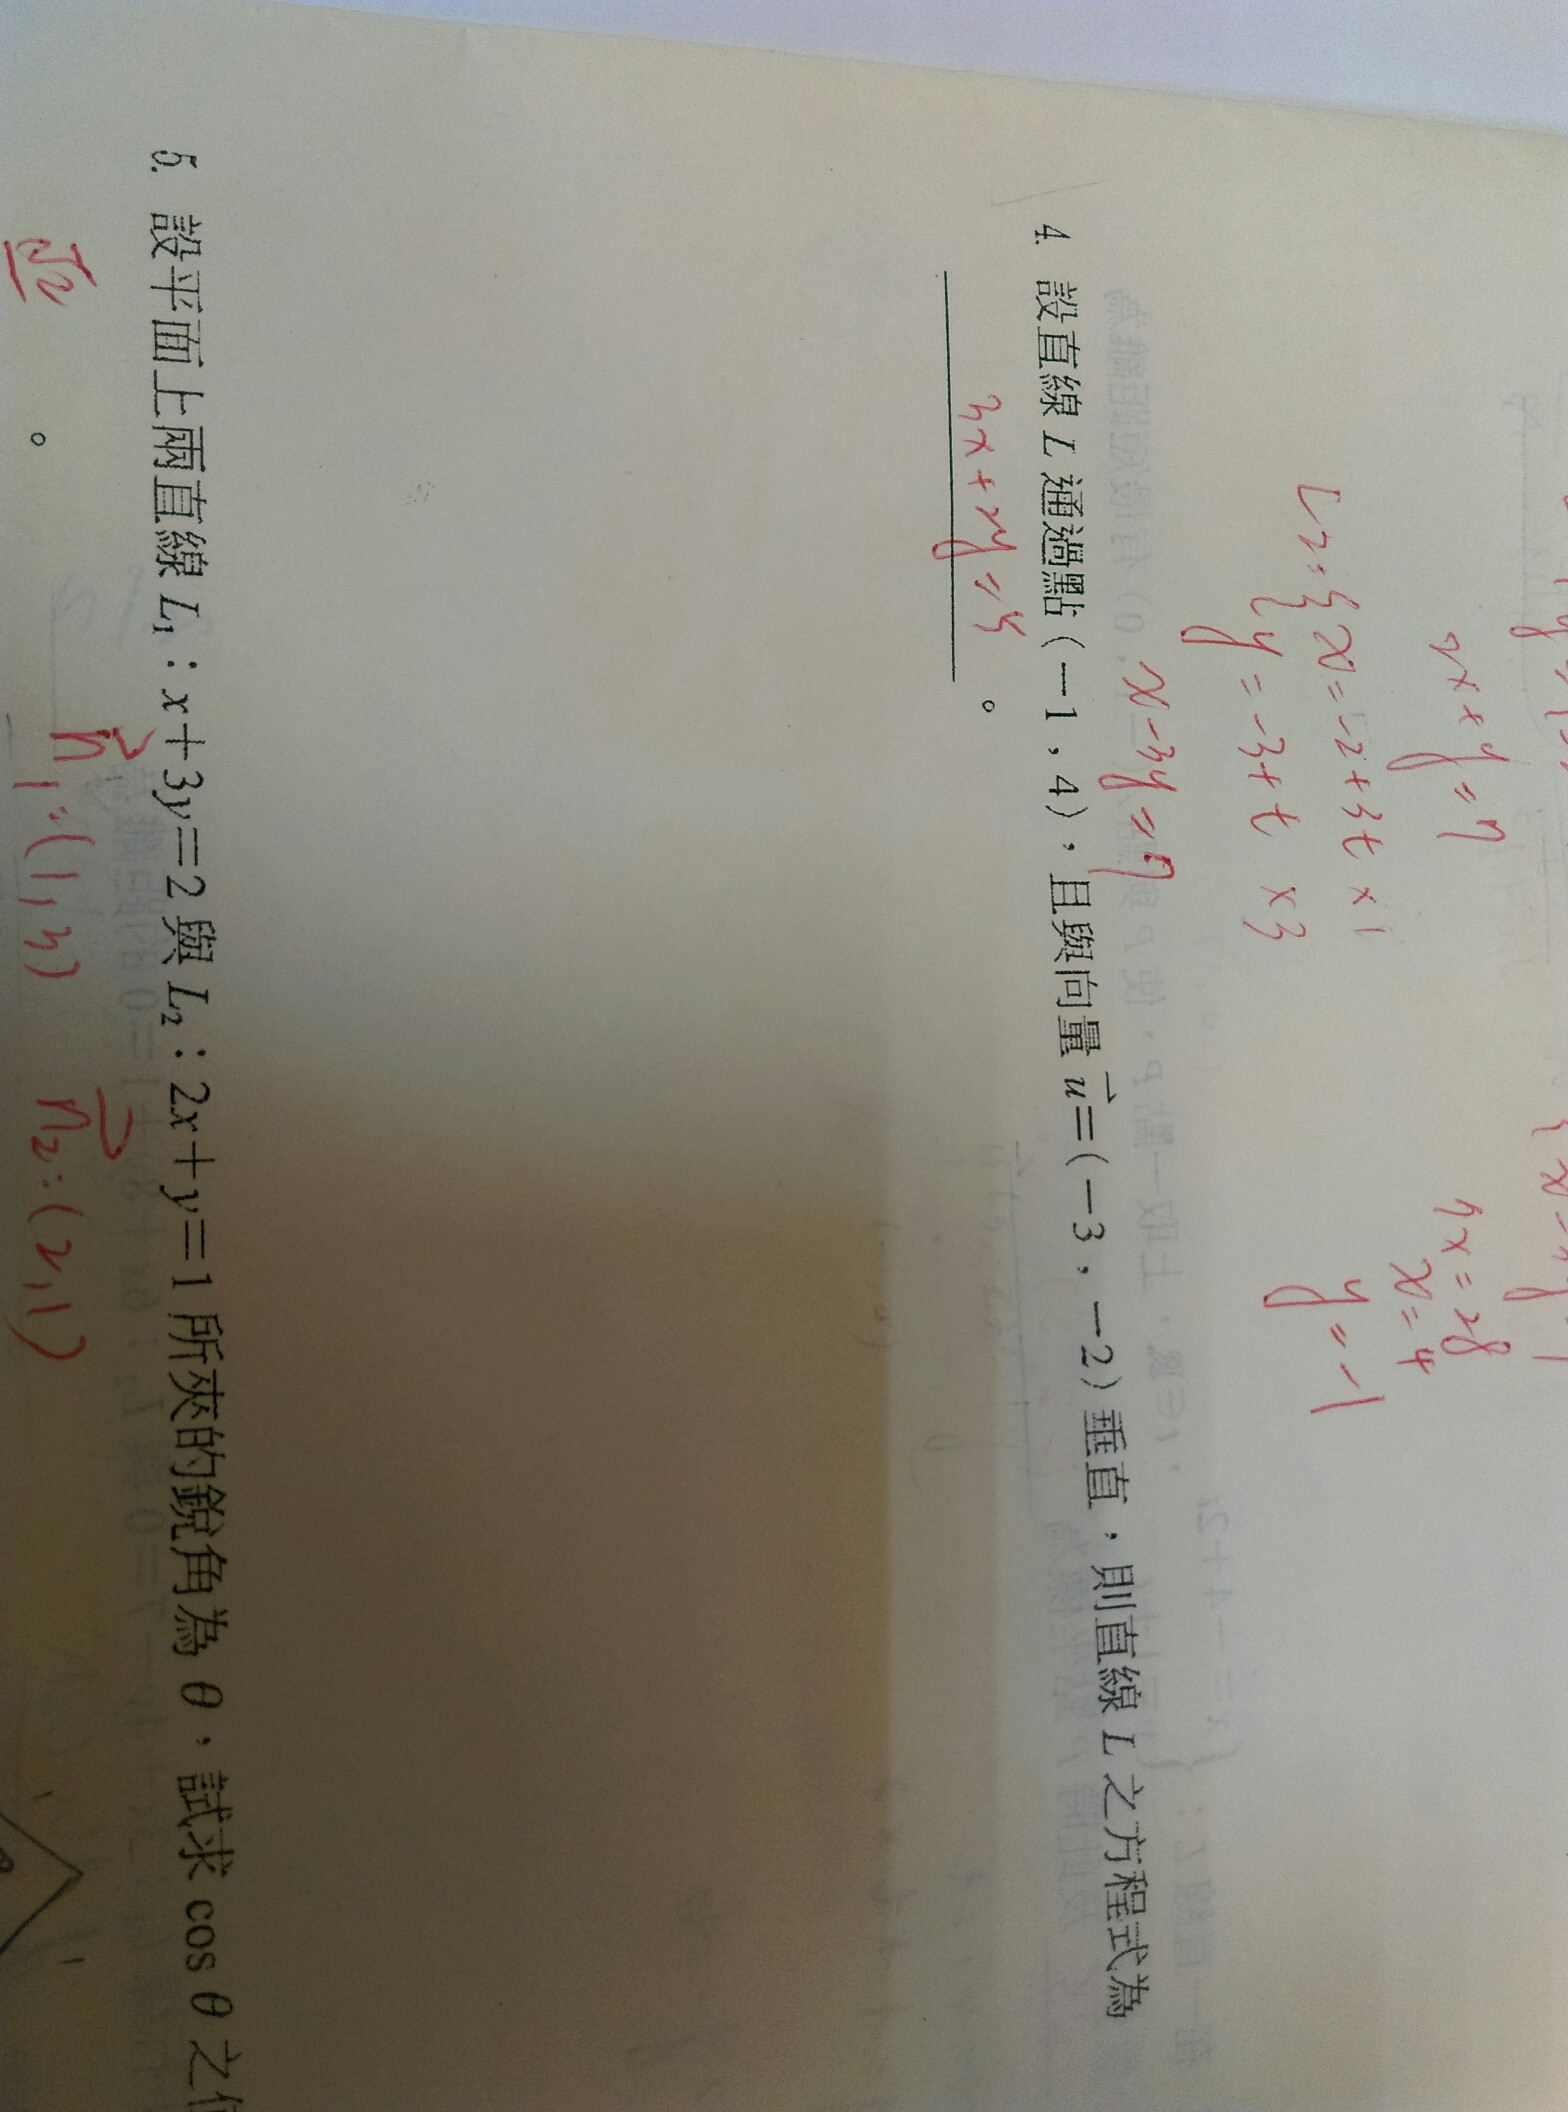 2x+y=7
5x=28
x=4
L2:{x=-2+3t x1
y=-3+t x3
y=-1
x-3y=7
4. 設直線 L 通過點(-1,4),且與向量 u⃗=(-3,-2)垂直,則直線 L 之方程式為
3x+2y=5 。
5. 設平面上兩直線 L₁:x+3y=2 與 L₂:2x+y=1 所夾的銳角為 θ,試求 cos θ 之
n⃗1:(1,3) n⃗2:(2,1)
。